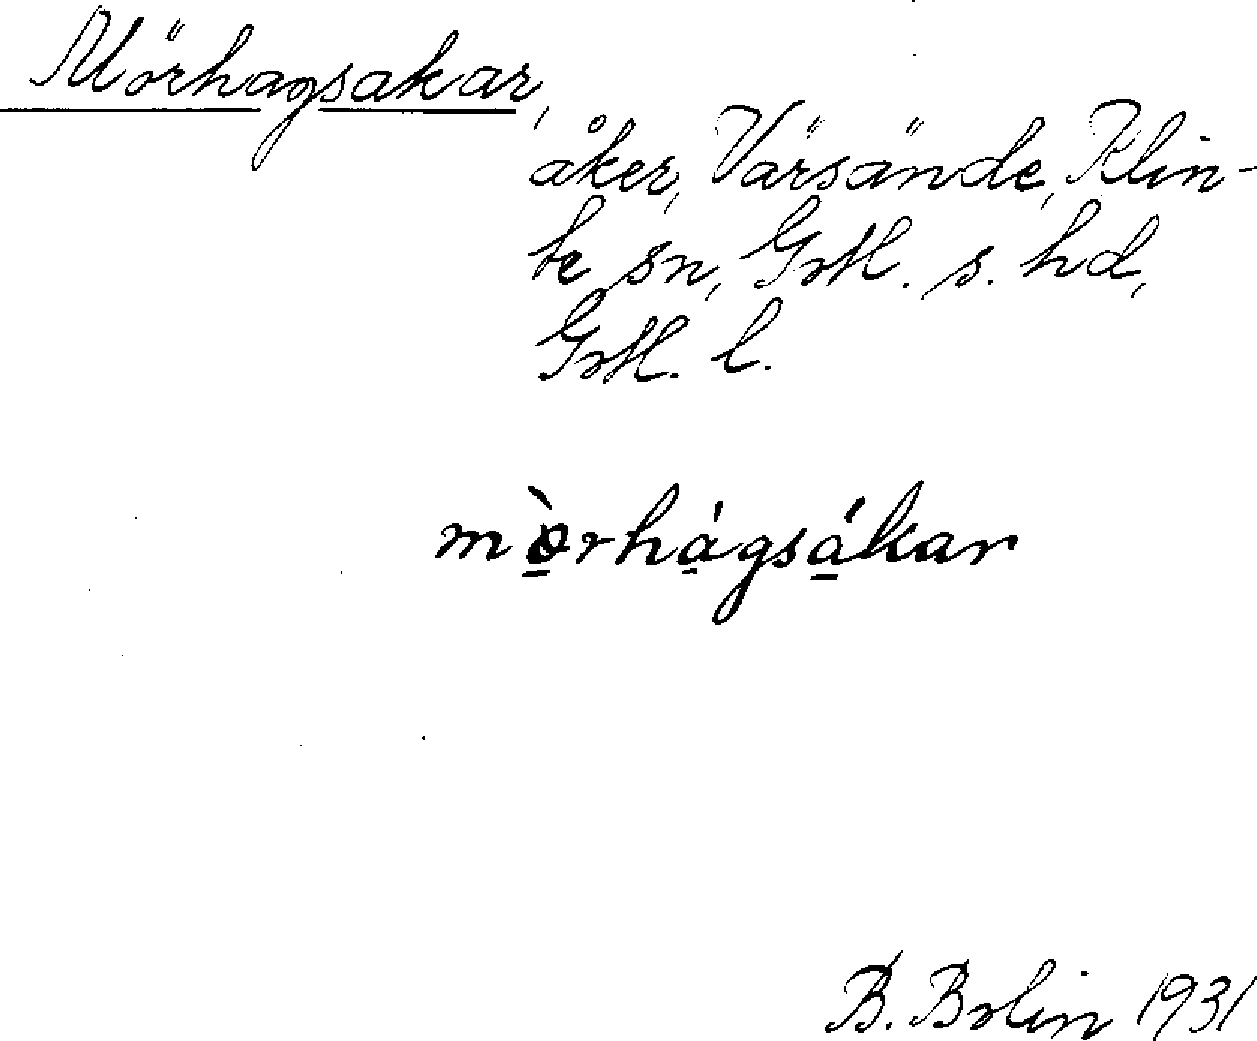 Mörhagsakar,
åker, Värsände, Klin-
te sn, Gotl. s. hd,
Gotl. l.
mò̱rhá̱gsá̱kar
B. Bolin 1931